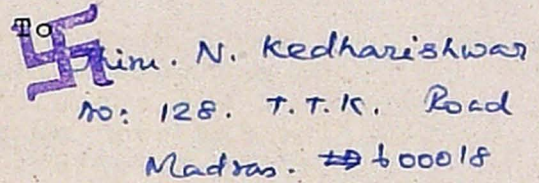 To
Thiru. N. Kedharishwar
No: 128. T.T.K. Road
Madras. 600018